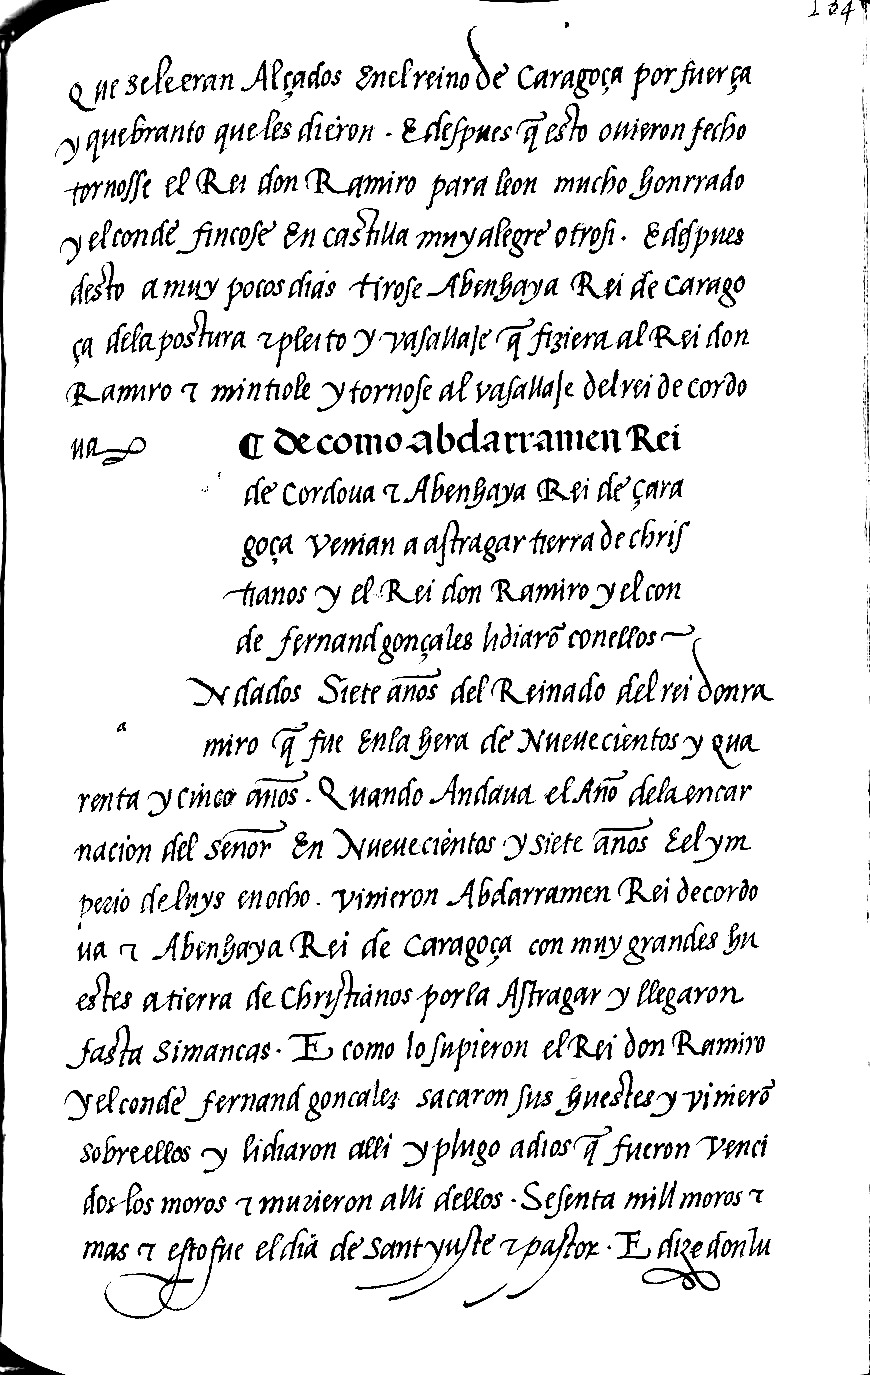 134
Que sele eran Alçados Enel reino de Caragoça por fuerça
y quebranto que les dieron . E despues q̃ esto ouieron fecho
tornosse el Rei don Ramiro para leon mucho honrrado
y el conde fincose En castilla muy alegre otrosi . E despues
desto a muy pocos dias tirose Abenhaya Rei de Carago
ça dela postura ⁊ pleito y vasallaje q̃ fiziera al Rei don
Ramiro ⁊ mintiole y tornose al vasallaje del rei de cordo
ua
¶ de como abdarramen Rei
de Cordoua ⁊ Abenhaya Rei de çara
goça venian a astragar tierra de chris
tianos y el Rei don Ramiro y el con
de fernand gonçales lidiarõ con ellos
Ndados Siete años del Reinado del rei don ra
a
miro q̃ fue Enla hera de Nueuecientos y qua
renta y cinco años . Quando Andaua el Año dela encar
nacion del señor En Nueuecientos y siete años E el ym
perio de luys en ocho . vinieron Abdarramen Rei de cordo
ua ⁊ Abenhaya Rei de Caragoça con muy grandes hu
estes a tierra de Christianos por la Astragar y llegaron
fasta Simancas . E como lo supieron el Rei don Ramiro
y el conde fernand goncalez sacaron sus huestes y vinierõ
sobre ellos y lidiaron alli y plugo a dios q̃ fueron venci
dos los moros ⁊ murieron alli dellos . Sesenta mill moros ⁊
mas ⁊ esto fue el dia de sant yuste ⁊ pastor . E dize don lu